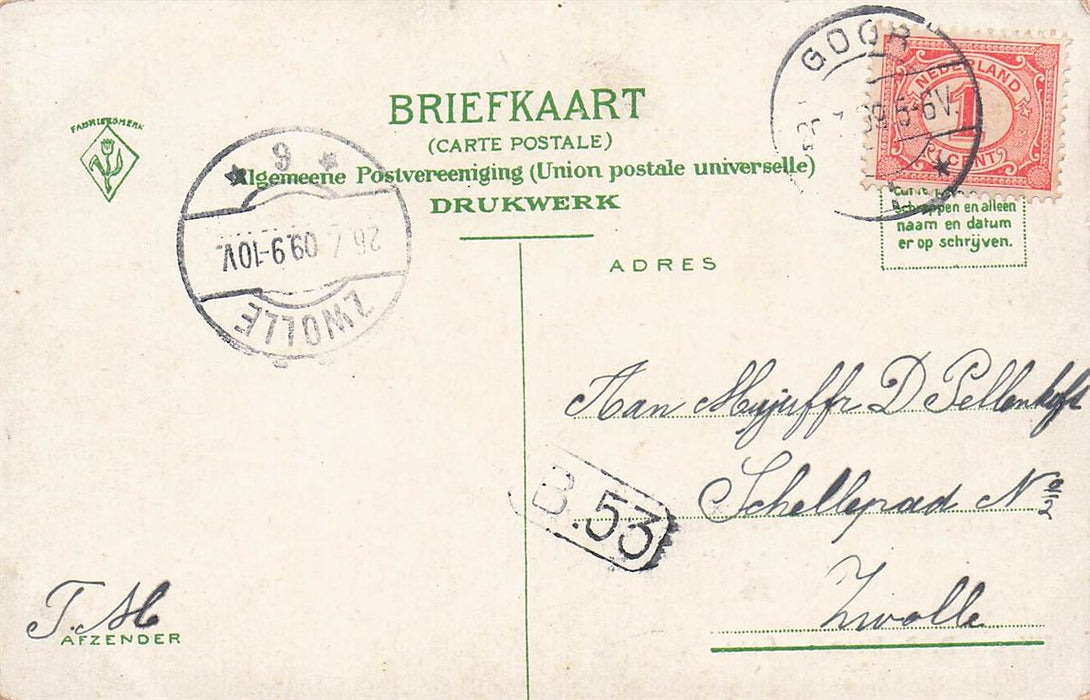 FABRIEKSMERK
BRIEFKAART
(CARTE POSTALE)
Algemeene Postvereeniging (Union postale universelle)
DRUKWERK
GOOR
09 5-6V.
NEDERLAND
1
CENT
schrappen en alleen
naam en datum
er op schrijven.
9
ZWOLLE
26 09.9-10V.
ADRES
Aan Mejuffr D Pellenhoft
Schellepad No 2
Zwolle
B.53
T. M
AFZENDER